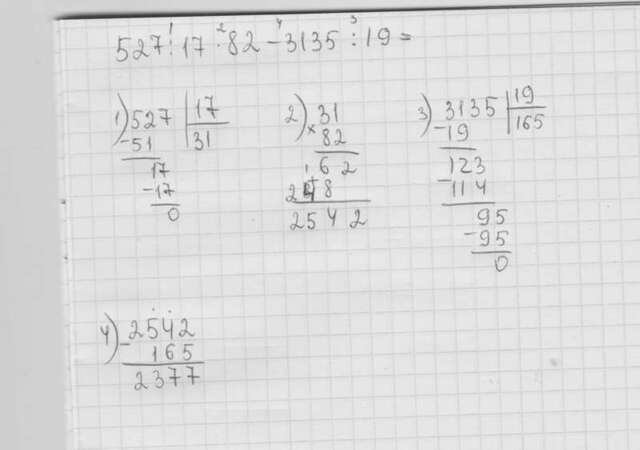 1 2 4 3
527:17·82-3135:19=
1) 527 17
-51 31
17
-17
0
2) 31
× 82
62
248
2542
3) 3135 19
-19 165
123
-114
95
-95
0
4) 2542
- 165
2377